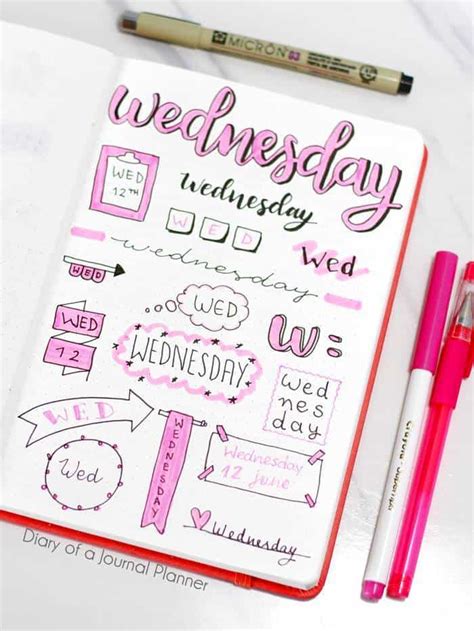 MICRON 03
Wednesday
WED
12TH
Wednesday
WED
Wed
wednesday
WED
WED
WED
12
WEDNESDAY
W:
Wed
nes
day
WED
WEDNESDAY
Wednesday
12 june
Wed
Wednesday
Crayola
Diary of a Journal Planner